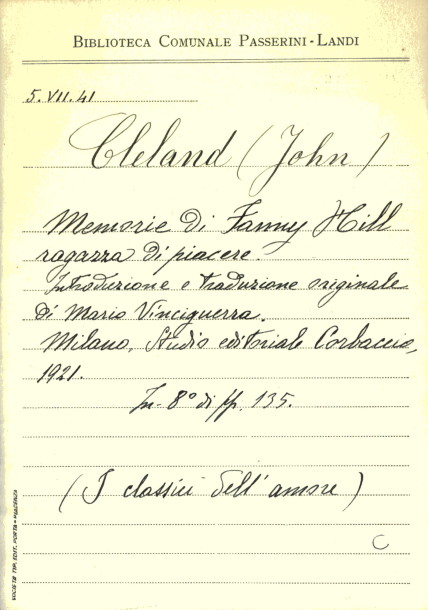 BIBLIOTECA COMUNALE PASSERINI-LANDI
5.VII.41
Cleland (John)
Memorie di Fanny Hill
ragazza di piacere.
Introduzione e traduzione originale
di Mario Vinciguerra.
Milano, Studio editoriale Corbaccio,
1921.
In-8° di pp. 135.
(I classici dell'amore)
C
SOCIETÀ TIP. EDIT. PORTA - PIACENZA